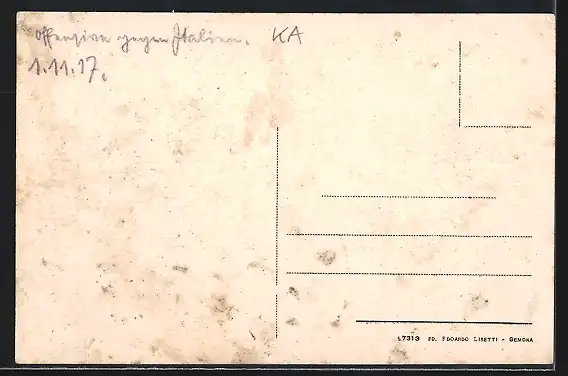 Offensive gegen Italien. KA
1.11.17.
L7313 ED. EDOARDO LISETTI - GEMONA